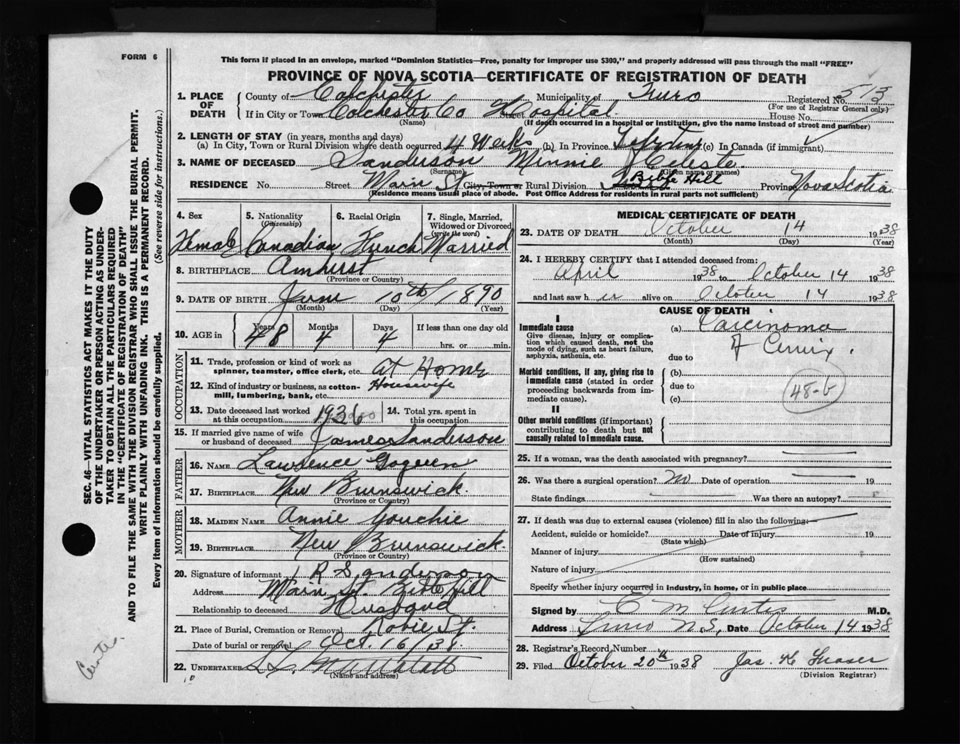 FORM 6
This form if placed in an envelope, marked "Dominion Statistics—Free, penalty for improper use $300," and properly addressed will pass through the mail "FREE"
PROVINCE OF NOVA SCOTIA—CERTIFICATE OF REGISTRATION OF DEATH
1. PLACE OF DEATH County of Colchester Municipality of Truro Registered No. 513
(For use of Registrar General only)
If in City or Town Colchester Co Hospital House No.
(Name) (If death occurred in a hospital or institution, give the name instead of street and number)
2. LENGTH OF STAY (in years, months and days)
(a) In City, Town or Rural Division where death occurred 4 Weeks (b) In Province Lifetime (c) In Canada (if immigrant)
3. NAME OF DECEASED Sanderson Minnie Celeste
(Surname) (Given name or names)
RESIDENCE No. Street Main St City, Town or Rural Division Bible Hill Province Nova Scotia
(Residence means usual place of abode. Post Office Address for residents in rural parts not sufficient)
4. Sex Female
5. Nationality (Citizenship) Canadian
6. Racial Origin French
7. Single, Married, Widowed or Divorced (write the word) Married
8. BIRTHPLACE Amherst
(Province or Country)
9. DATE OF BIRTH June 10th 1890
(Month) (Day) (Year)
10. AGE in Years 48 Months 4 Days 4 If less than one day old
hrs. or min.
OCCUPATION
11. Trade, profession or kind of work as spinner, teamster, office clerk, etc. At Home
12. Kind of industry or business, as cotton-mill, lumbering, bank, etc. Housewife
13. Date deceased last worked at this occupation 1936
14. Total yrs. spent in this occupation
15. If married give name of wife or husband of deceased James Sanderson
FATHER
16. NAME Lawrence Goguen
17. BIRTHPLACE New Brunswick
(Province or Country)
MOTHER
18. MAIDEN NAME Annie Youchie
19. BIRTHPLACE New Brunswick
(Province or Country)
20. Signature of informant J R Sanderson
Address Main St. Bible Hill
Relationship to deceased Husband
21. Place of Burial, Cremation or Removal Robie St.
Date of burial or removal Oct. 16/38.
22. UNDERTAKER
(Name and address)
MEDICAL CERTIFICATE OF DEATH
23. DATE OF DEATH October 14 1938
(Month) (Day) (Year)
24. I HEREBY CERTIFY that I attended deceased from:
April 1938 to October 14 1938
and last saw her alive on October 14 1938
CAUSE OF DEATH
I
Immediate cause
Give disease, injury or complication which caused death, not the mode of dying, such as heart failure, asphyxia, asthenia, etc.
(a) Carcinoma of Cervix.
due to
Morbid conditions, if any, giving rise to immediate cause (stated in order proceeding backwards from immediate cause).
(b)
due to
(c)
48-b
II
Other morbid conditions (if important) contributing to death but not causally related to immediate cause.
25. If a woman, was the death associated with pregnancy?
26. Was there a surgical operation? No Date of operation 19
State findings Was there an autopsy?
27. If death was due to external causes (violence) fill in also the following:
Accident, suicide or homicide? Date of injury 19
(State which)
Manner of injury
(How sustained)
Nature of injury
Specify whether injury occurred in industry, in home, or in public place
Signed by E M Curtis M.D.
Address Truro N.S. Date October 14 1938
28. Registrar's Record Number
29. Filed October 20th 1938 Jas. H Fraser
(Division Registrar)
SEC. 46—VITAL STATISTICS ACT MAKES IT THE DUTY
OF THE UNDERTAKER OR PERSON ACTING AS UNDERTAKER TO OBTAIN ALL THE PARTICULARS REQUIRED
IN THE "CERTIFICATE OF REGISTRATION OF DEATH"
AND TO FILE THE SAME WITH THE DIVISION REGISTRAR WHO SHALL ISSUE THE BURIAL PERMIT.
WRITE PLAINLY WITH UNFADING INK. THIS IS A PERMANENT RECORD.
Every item of information should be carefully supplied. (See reverse side for instructions.)